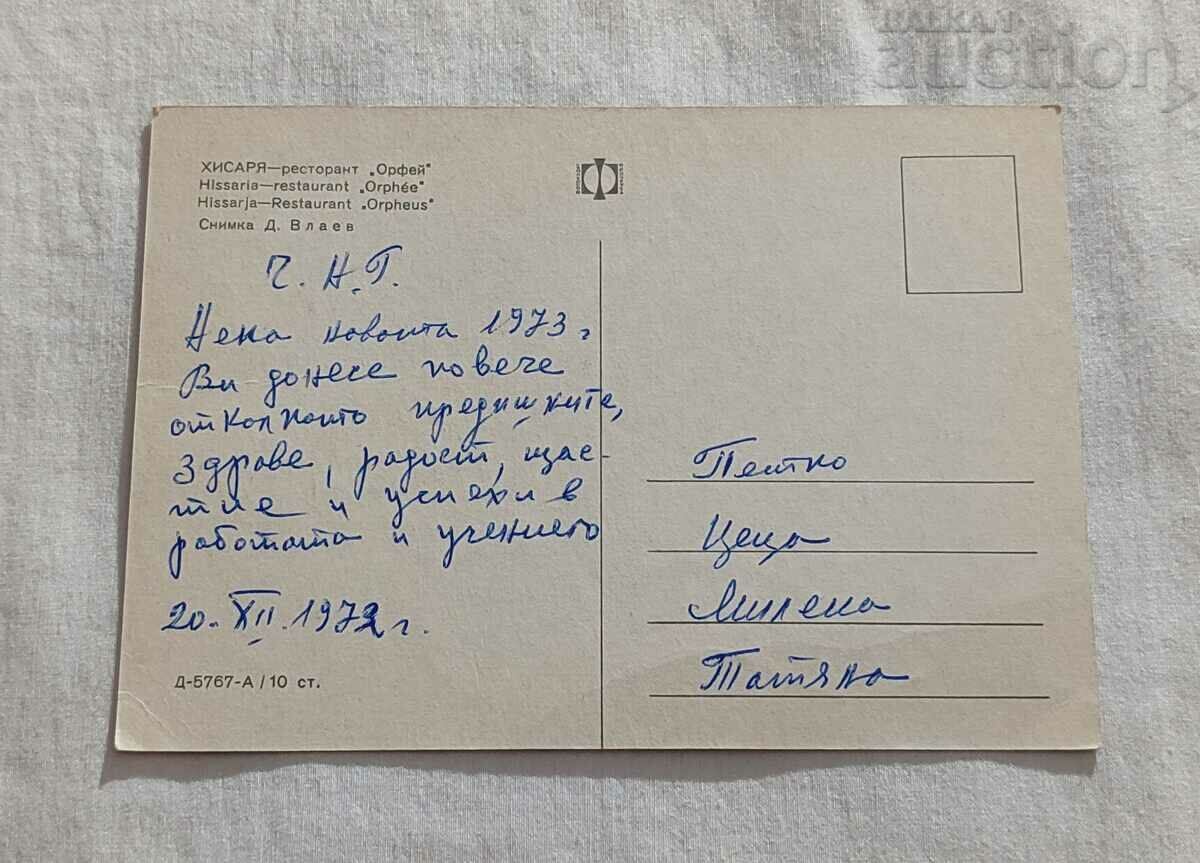 BALKAN
auction
ХИСАРЯ—ресторант „Орфей"
Hissaria—restaurant „Orphée"
Hissarja—Restaurant „Orpheus"
Снимка Д. Влаев
Ч. Н. Г.
Нека новата 1973 г
Ви донесе повече
отколкото предишните,
здраве, радост, щас-
тие и успехи в
работата и учението
20. XII. 1972 г.
Д-5767-А/10 ст.
Петко
Цеца
Милена
Татяна